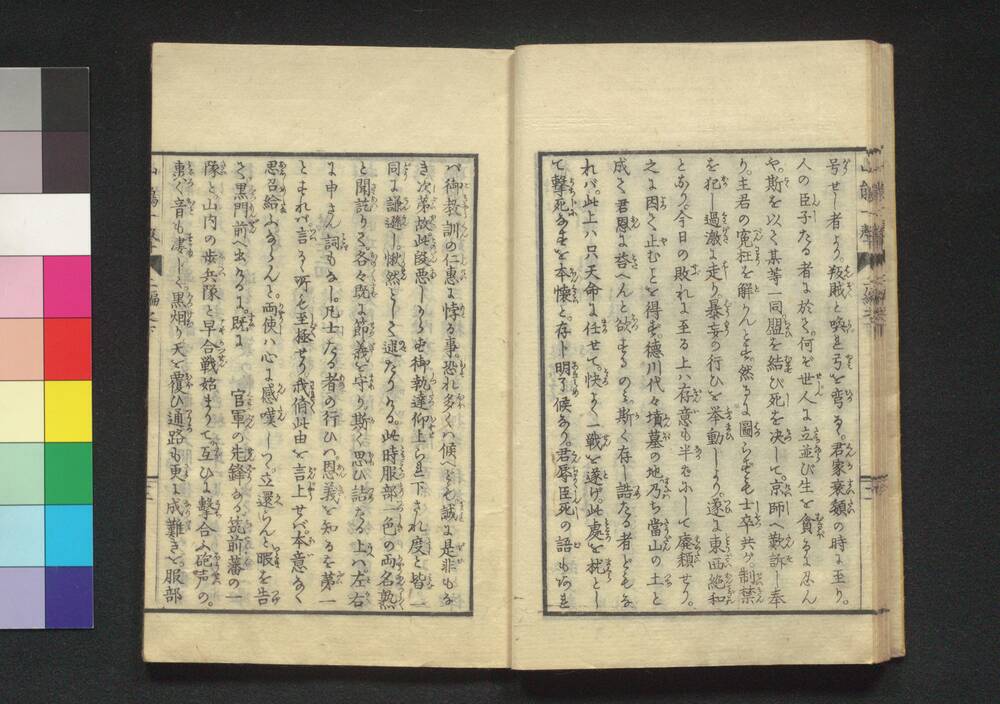 号せし者より。叛賊と喚れ弓を弯る。君家衰頽の時に至り。
人の臣子たる者に於て。何を世人に立並び生を貪るに忍ん
や。斯を以て某等一同。盟を結び死を決して。京師へ歎訴し奉
り。主君の寃枉を解んとす。然るに図らずも士卒共が。制禁
を犯し過激に走り暴妄の行ひを挙動しより。遂に東西絶和
となり。今日の敗れに至る上ハ存意も半にして廃頽せり。
之に因て止むを得ず。徳川代々墳墓の地乃ち當山の土と
成て君恩に答へんと欲するのミ。斯く存し詰たる者どもな
れバ。此上ハ只天命に任せて。快よく一戦を遂げ。此處を枕とし
て撃死なすを本懐と。存し明らめ候なり。君辱臣死の語もあれ
バ御教訓の仁恵に悖る事。恐れ多くハ候へども。誠に是非もな
き次第故此段悪しからず御執達仰上られ下され度と皆一
同に謙遜し。愀然として述たりける。此時服部一色の両名熟
と聞訖りて各々既に節義を守り斯く思ひ詰たる上ハ左右
に申さん詞もなし。凡士たる者の行ひハ。恩義を知るを第一
とすれバ言るゝ所も至極せり我儕此由を言上せバ本意なく
思召給ふならんと。両使ハ心に感嘆しつゝ立還らんと暇を告
て。黒門前へ出るに。既に　官軍の先鋒なる筑前藩の一
隊と。山内の歩兵隊と早合戦始まりて互ひに撃合ふ砲声の。
轟く音も凄しく。黒烟り天を覆ひ通路も更に成難きを服部